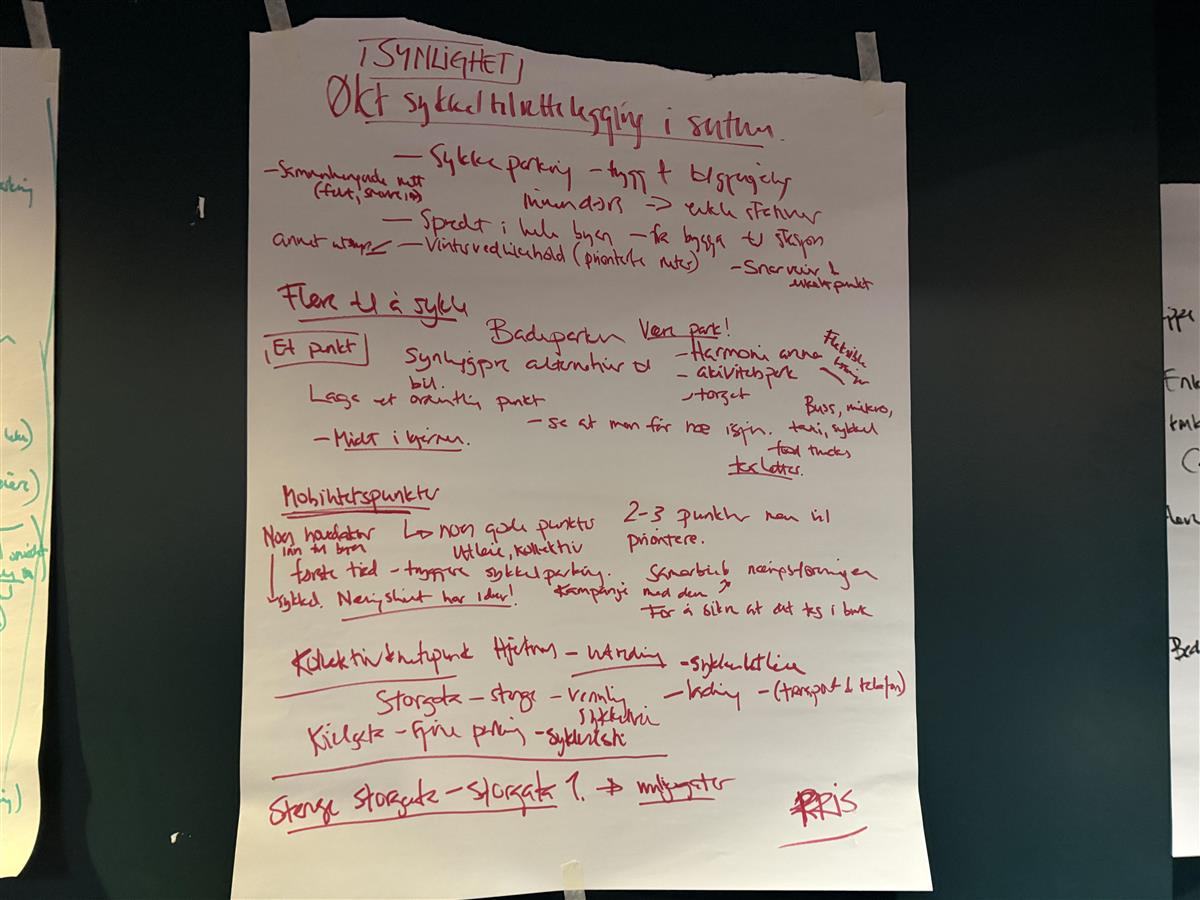 SYNLIGHET
Økt sykkeltilrettelegging i sentrum.
- Sykkelparkering - trygg + tilgjengelig
- Sammenhengende nett
(felt, snarveier)
innendørs -> enkle stativer
- Spredt i hele byen - fra brygga til stasjon
annet
- Vintervedlikehold (prioriterte ruter)
- Snarveier &
enkeltpunkt
Flere til å sykle
Badeparken Være park!
Et punkt
Synliggjøre alternativer til
bil.
- Harmoni arena
- aktivitetspark
- torget
Elektriske
løsninger
Lage et ordentlig punkt
- se at man får noe igjen.
Buss, mikro,
taxi, sykkel
food trucks
toaletter.
- Midt i kjernen.
Mobilitetspunkter
Noen hovedakser
inn til byen
↳ noen gode punkter
Utleie, kollektiv
2-3 punkter man vil
prioritere.
første tid - tryggere sykkelparkering.
- sykkel. Næringslivet har ideer!
Samarbeid næringsforeningen
Kampanje med den ↗
For å sikre at det tas i bruk
Kollektivknutepunkt Hjertnes - utvikling - sykkelutleie
Storgata - stenge - vennlig
sykkelvei
- lading - (transport & telefon)
Kilgata - Fjerne parkering - sykkelsti
Stenge storgata - Storgata 1. -> miljøgater
PRIS